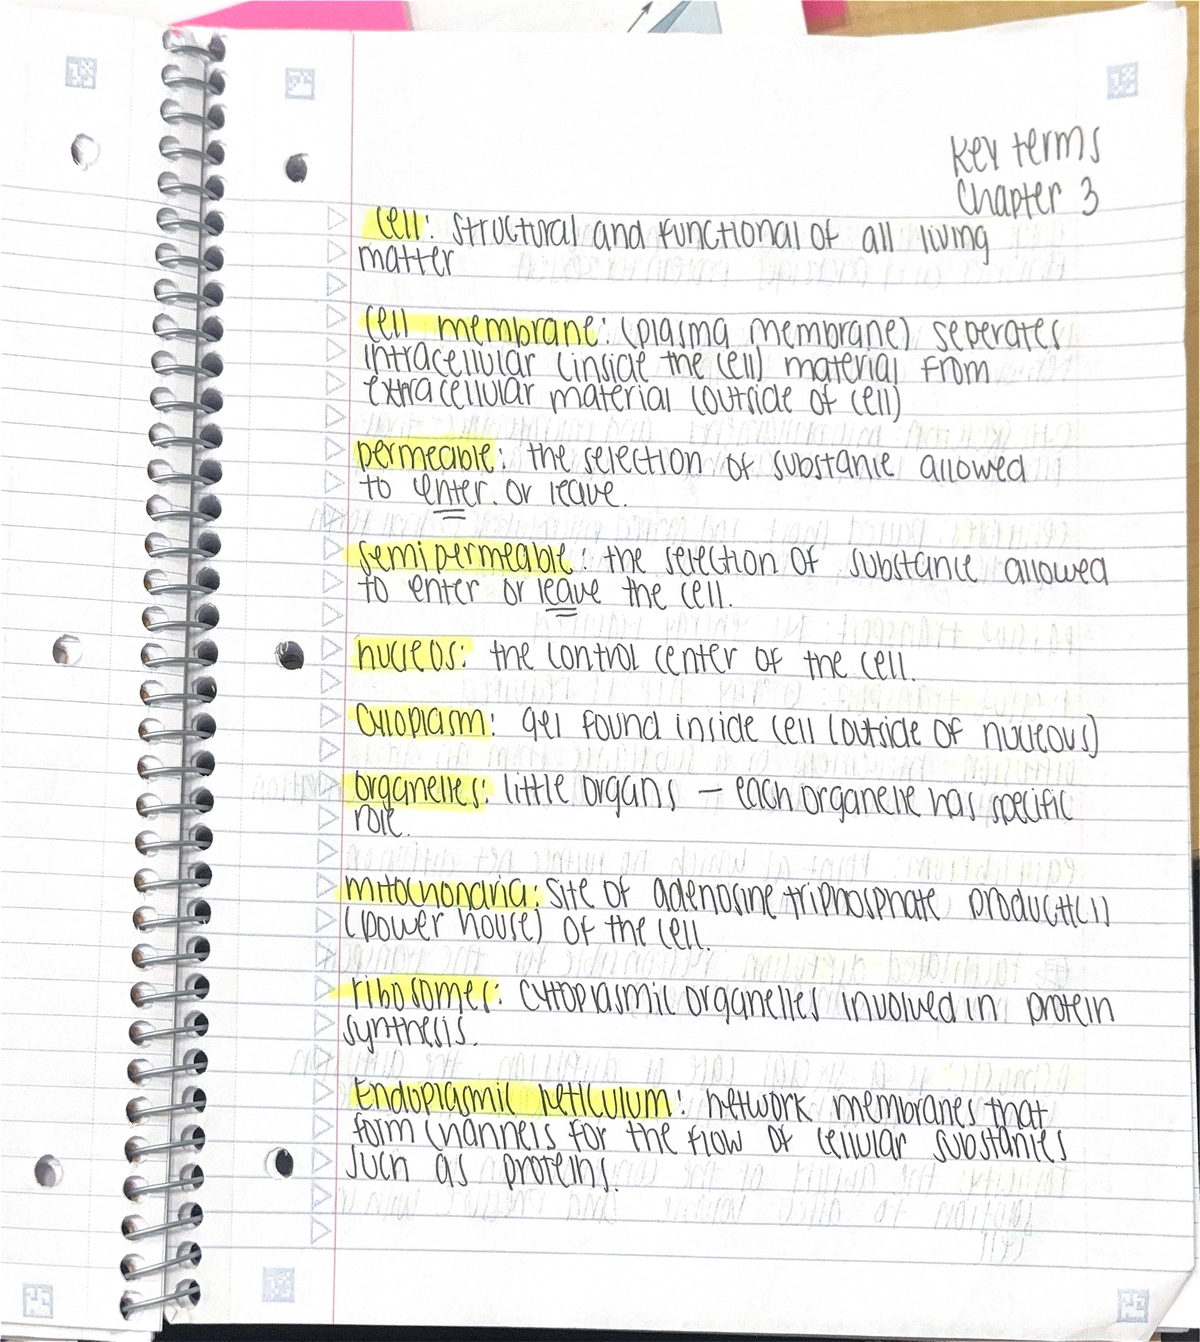 Key terms
Chapter 3
cell: structural and functional of all living
matter
cell membrane: (plasma membrane) seperates
intracellular (inside the cell) material from
extracellular material (outside of cell)
permeable: the selection of substance allowed
to enter. or leave.
semipermeable: the selection of substance allowed
to enter or leave the cell.
nucleos: the control center of the cell.
cytoplasm: gel found inside cell (outside of nucleous)
organelles: little organs – each organelle has specific
role.
mitochondria: site of adenosine triphosphate
(power house) of the cell.
ribosomes: cytoplasmic organelles involved in protein
synthesis.
Endoplasmic reticulum: network membranes that
form channels for the flow of cellular substances
such as proteins.